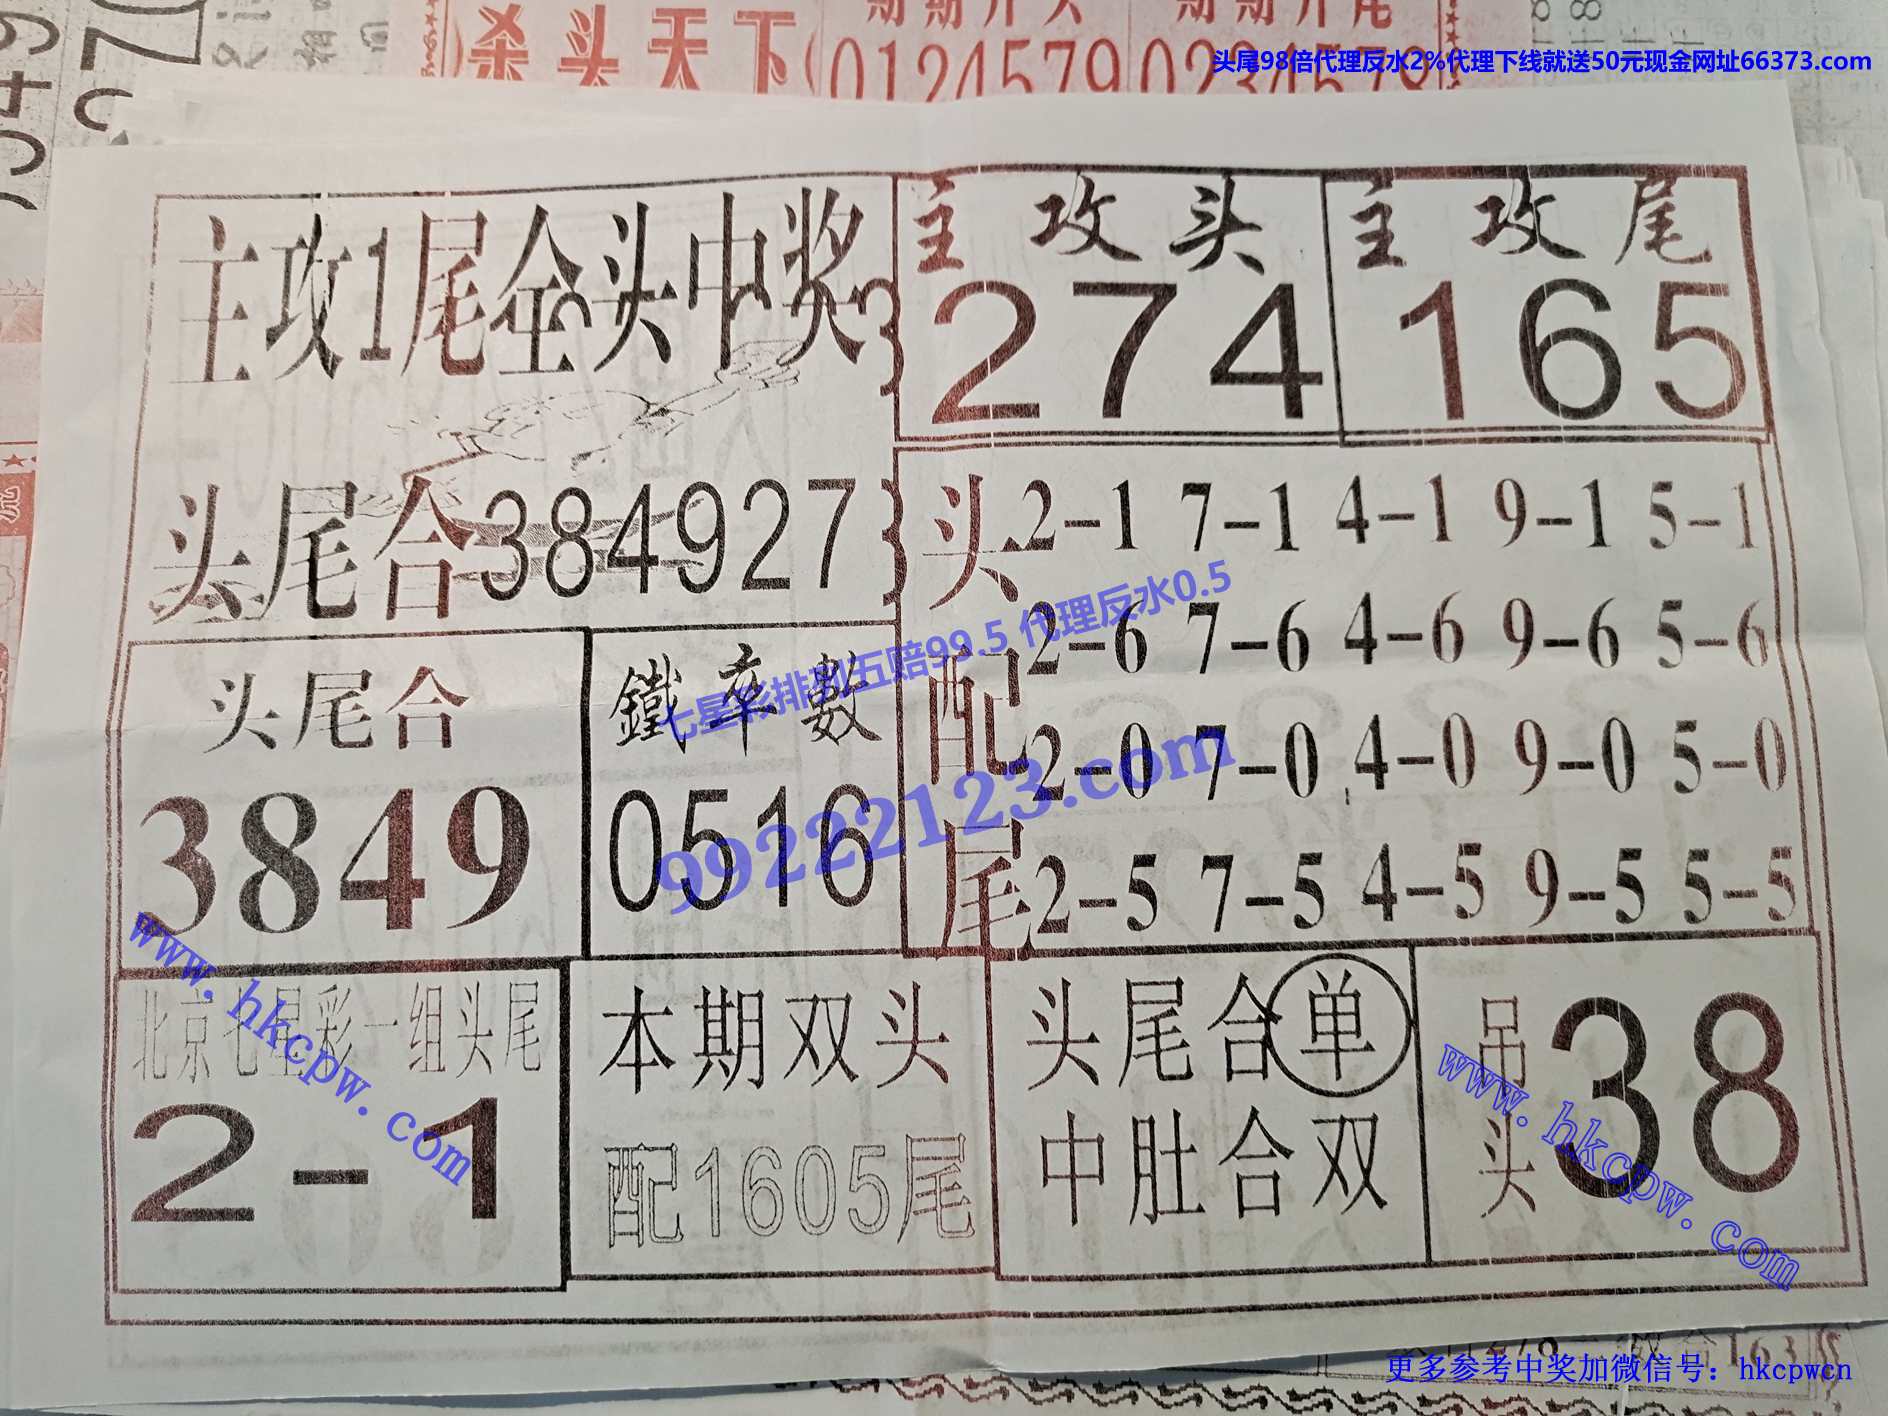 期期开头 期期开尾
杀头天下 01245790234578
头尾98倍代理反水2%代理下线就送50元现金网址66373.com
主攻1尾全头中奖
主攻头
274
主攻尾
165
头尾合384927
头配尾
2-1 7-1 4-1 9-1 5-1
2-6 7-6 4-6 9-6 5-6
2-0 7-0 4-0 9-0 5-0
2-5 7-5 4-5 9-5 5-5
头尾合
3849
鐵率數
0516
七星彩排列五赔99.5 代理反水0.5
99222123.com
北京七星彩一组头尾
2-1
www.hkcpw.com
本期双头
配1605尾
头尾合单
中肚合双
吊头
38
www.hkcpw.com
163
更多参考中奖加微信号：hkcpwcn